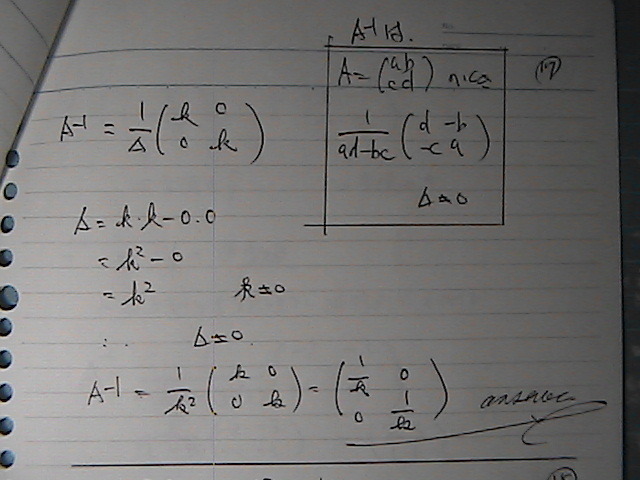 A-1は.
A = (a b
c d) nicº (17)
1/ad-bc (d -b
-c a)
Δ≠0
A-1 = 1/Δ (k 0
0 k)
Δ = k・k - 0.0
= k² - 0
= k² k≠0
∴ Δ≠0.
A-1 = 1/k² (k 0
0 k) = (1/k 0
0 1/k) answer